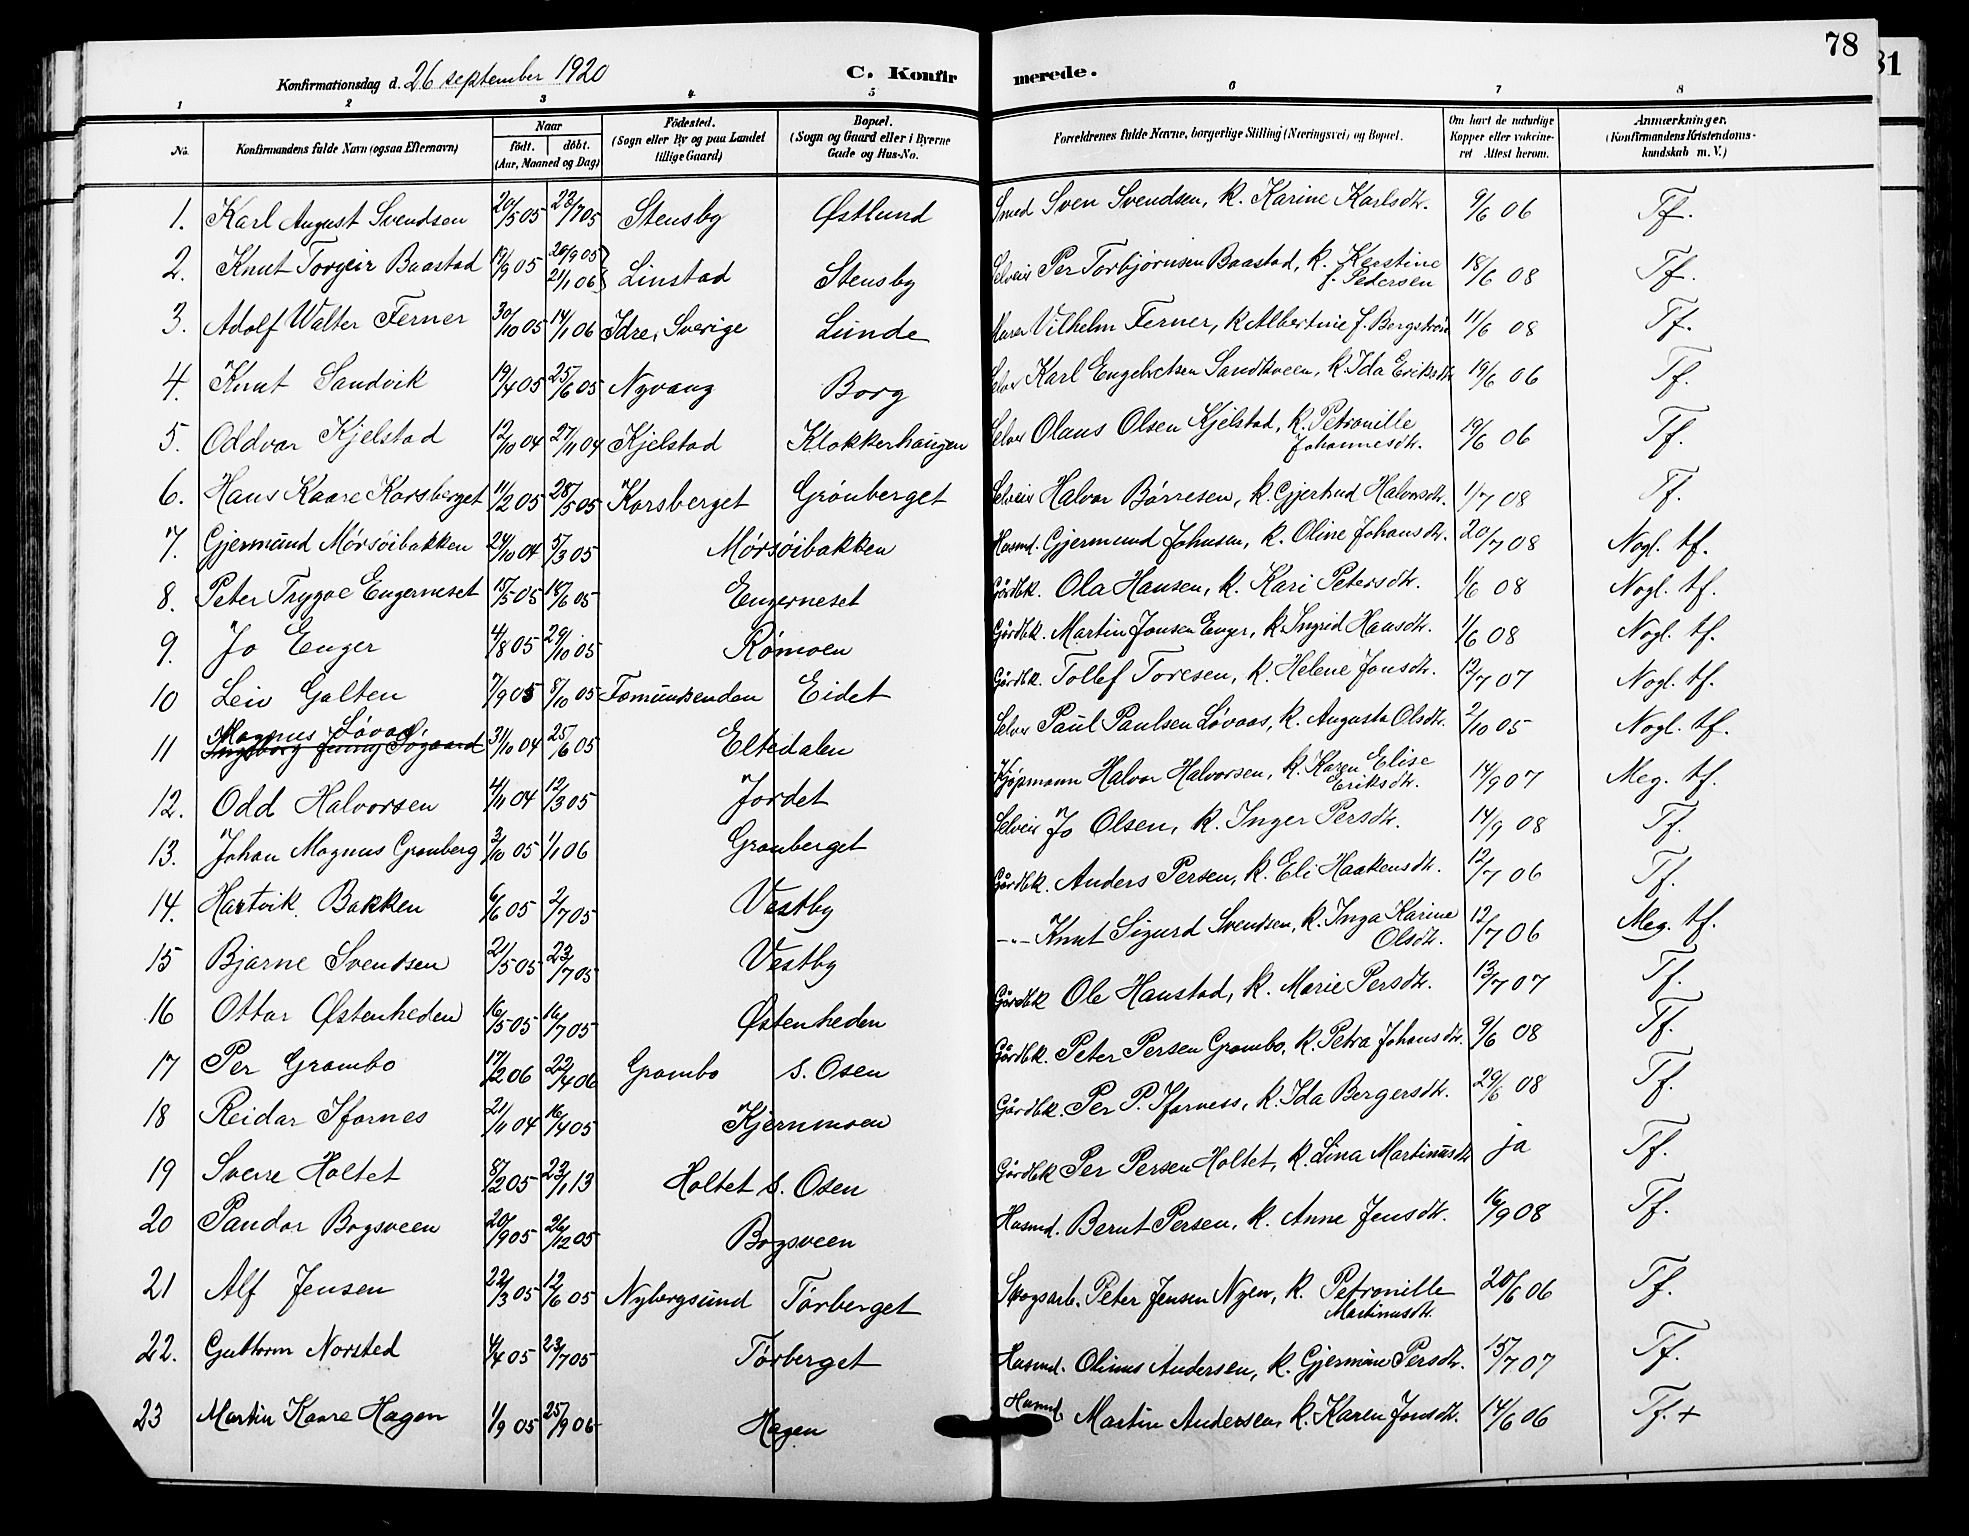 78
81
Konfirmationsdag d. 26 september 1920 C. Konfirmerede.
1 2 3 4 5 6 7 8
No. Konfirmandens fulde Navn (ogsaa Efternavn) Naar født. døbt. (Aar, Maaned og Dag) Fødested. (Sogn eller By og paa Landet tillige Gaard) Bopæl. (Sogn og Gaard eller i Byerne Gade og Hus-No. Forældrenes fulde Navne, borgerlige Stilling (Næringsvei) og Bopæl. Om havt de naturlige Kopper eller vaccineret Attest herom. Anmærkninger. (Konfirmandens Kristendomskundskab m. V.)
1. Karl August Svendsen 20/5 05 23/7 05 Stensby Østlund Smed Sven Svendsen, k. Karine Karlsdtr. 9/6 06 Tf.
2. Knut Torgeir Baastad 19/9 05 20/9 05 21/1 06 Linstad Stensby Selveier Per Torbjørnsen Baastad, k. Kerstine f. Pedersen 18/6 08 Tf.
3. Adolf Walter Ferner 30/10 05 14/1 06 Idre, Sverige Lunde Murer Vilhelm Ferner, k Albertine f. Bergstrøm 11/6 08 Tf.
4. Knut Sandvik 19/4 05 25/6 05 Nyvang Borg Selv Karl Engebretsen Sandkveen, k. Ida Eriksdtr 19/6 06 Tf.
5. Oddvar Kjelstad 12/10 04 27/11 04 Kjelstad Klokkerhaugen Selvei Olaus Olsen Kjelstad, k. Petronille Johannesdtr. 19/6 06 Tf.
6. Hans Kaare Korsberget 11/2 05 28/5 05 Korsberget Grønberget Selveier Halvor Børresen, k. Gjertrud Halvorsdtr. 1/7 08 Tf.
7. Gjermund Mörsöibakken 24/10 04 5/3 05 Mörsöibakken Husmd. Gjermund Johnsen, k. Oline Johansdtr. 20/7 08 Nogl. tf.
8. Peter Trygve Engerneset 15/5 05 18/6 05 Engerneset Gårdbk. Ola Hansen, k. Kari Petersdtr. 1/6 08 Nogl. tf.
9. Jo Enger 4/8 05 29/10 05 Römoen Gårdbk. Martin Jonsen Enger, k. Ingrid Hansdtr. 1/6 08 Nogl. tf.
10 Leiv Galten 7/9 05 8/10 05 Fæmundsenden Eidet Gårdbk. Tollef Toresen, k. Helene Jonsdtr. 12/7 07 Nogl. tf.
11 Magnus Løvaas. Ingeborg Jenny Søgaard 31/10 04 25/6 05 Eltedalen Selvei Paul Paulsen Løvaas, k. Augusta Olsdtr. 2/10 05 Nogl. tf.
12. Odd Halvorsen 4/11 04 12/3 05 Jordet Kjøpmann Halvor Halvorsen, k. Karen Elise Eriksdtr. 14/9 07 Meg. tf.
13. Johan Magnus Gronberg 3/10 05 1/1 06 Gronberget Selveier Jo Olsen, k. Inger Persdtr. 14/9 08 Tf.
14. Hartvik Bakken 6/6 05 2/7 05 Vestby Gårdbk. Anders Persen, k. Eli Haakensdtr. 12/7 06 Tf.
15 Bjarne Svendsen 21/5 05 23/7 05 Vestby -"- Knut Sigurd Svendsen, k. Inga Karine Olsdtr. 12/7 06 Meg. tf.
16 Ottar Østenheden 16/5 05 16/7 05 Østenheden Gårdbk Ole Haustad, k. Marie Persdtr. 13/7 07 Tf.
17 Per Grambo 17/2 06 22/4 06 Grambo s. Osen Gårdbk. Peter Persen Grambo, k. Petra Johansdtr. 9/6 08 Tf.
18 Reidar Ifarnes 21/11 04 16/4 05 Kjernmoen Gårdbk. Per P. Ifarness, k. Ida Bergersdtr. 29/6 08 Tf.
19 Sverre Holtet 8/2 05 23/1 13 Holtet s. Osen Gårdbk Per Persen Holtet, k. Lina Martinusdtr ja Tf.
20 Sandor Bogsveen 20/9 05 26/12 05 Bogsveen Husmd. Bernt Persen, k. Anne Jensdtr. 16/9 08 Tf.
21 Alf Jensen 22/3 05 12/6 05 Nybergsund Törberget Skogsarb. Peter Jensen Nyen, k. Petronille Martinusdtr. 20/6 06 Tf.
22. Guttorm Norsted 4/4 05 23/7 05 Törberget Husmd. Olinus Andersen, k. Gjermine Persdtr. 15/7 07 Tf.
23 Martin Kaare Hagen 1/9 05 25/9 06 Hagen Husmd. Martin Andersen, k. Karen Jonsdtr. 14/6 06 Tf. +